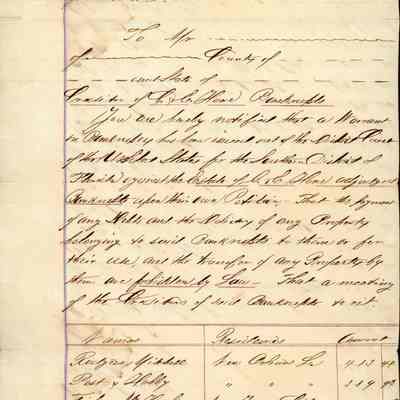 To Mr
of County of
and State of
Creditor of C & C Howe Bankrupts
You are hereby notified that a Warrant
in Bankruptcy has been issued out of the District Court
of the United States for the Southern District of
Florida against the Estate of C & C Howe adjudged
Bankrupts upon their own Petition. That the payment
of any Debts and the Delivery of any Property
belonging to said Bankrupts to them or for
their use, and the transfer of any Property by
them are forbidden by Law. That a meeting
of the Creditors of said Bankrupts to wit.
Names Residences Amount
New Orleans La 413 44
Post & Hobby " " " 319